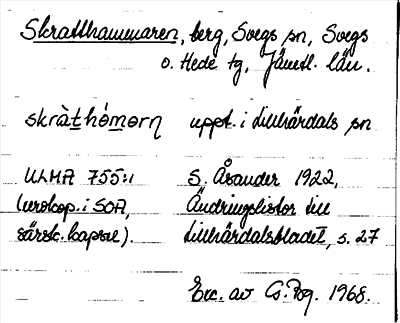 Skratthammaren, berg, Svegs sn, Svegs
o. Hede tg, Jämtl. län.
skràthámorn uppt. i Lillhärdals sn
ULMA 755:1 S. Åsander 1922,
(urskop. i SOA, Ändringslistor till
särsk. kapsel). Lillhärdalsbladet, s. 27
Exc. av G. Pog. 1968.